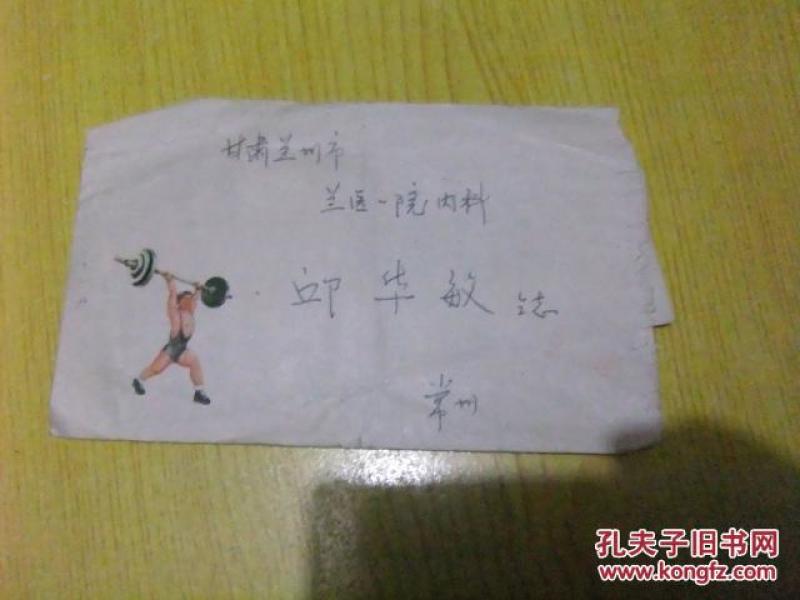 甘肃兰州市
兰医一院内科
邱华敏 仝志
常州
孔夫子旧书网
www.kongfz.com